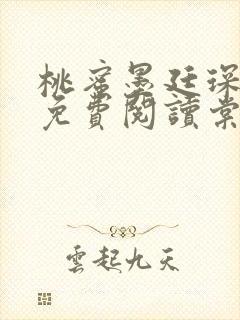 桃蜜墨廷琛
免費閱讀棠
雲起九天